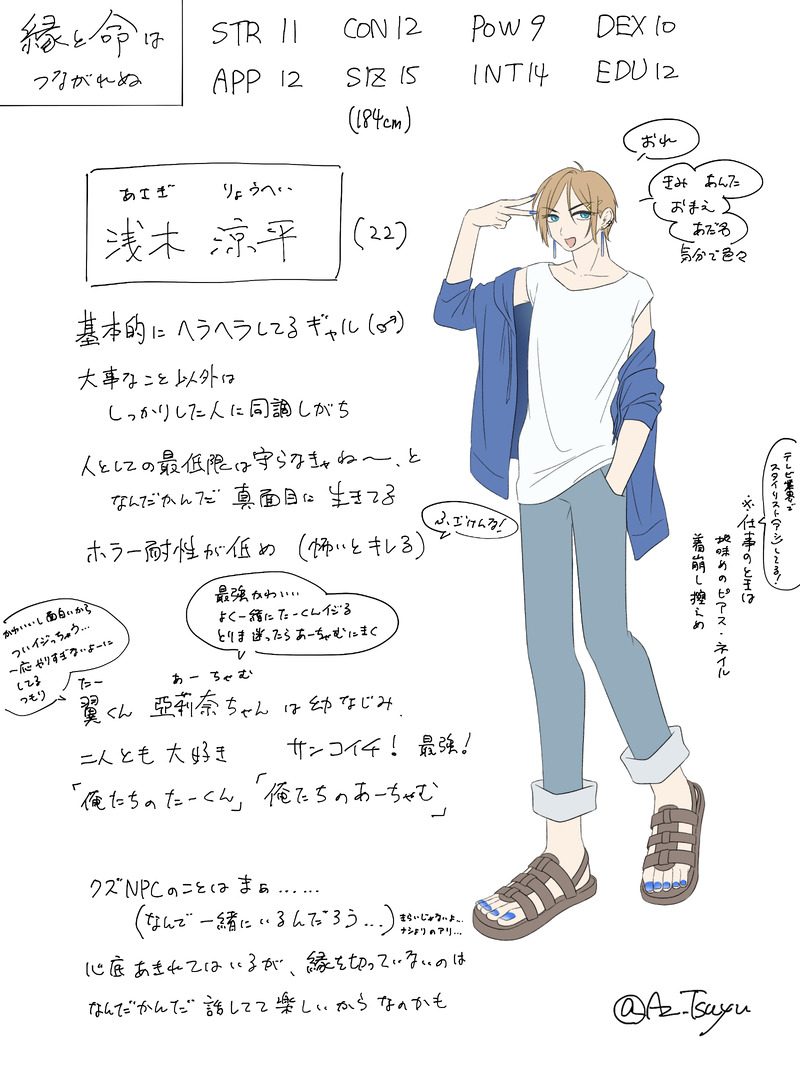 縁と命は
つながれぬ
STR 11 CON 12 POW 9 DEX 10
APP 12 SIZ 15 INT 14 EDU 12
(184cm)
あさぎ りょうへい
浅木 涼平 (22)
おれ
きみ あんた
おまえ
あだ名
気分で色々
基本的にヘラヘラしてるギャル(♂)
大事なこと以外は
しっかりした人に同調しがち
人としての最低限は守らなきゃね〜、と
なんだかんだ 真面目に 生きてる
ホラー耐性が低め (怖いとキレる)
ふざけんな!
テレビ業界で
スタイリスト(アシ)してる!
※仕事のときは
地味めのピアス・ネイル
着崩し控えめ
最強かわいい...
よく一緒にたーくんイジる
とりま迷ったらあーちゃむにきく
かわいいし面白いから
ついイジっちゃう...
一応やりすぎないよーに
してる
つもり
たー あーちゃむ
翼くん 亜莉奈ちゃん は幼なじみ.
二人とも 大好き サンコイチ! 最強!
「俺たちのたーくん」「俺たちのあーちゃむ」
クズNPCのことは まぁ......
(なんで 一緒にいるんだろう...)
きらいじゃないよ...
ナシよりのアリ...
心底あきれてはいるが、縁を切っていないのは
なんだかんだ 話してて楽しいから なのかも
@Az_Tsuyu